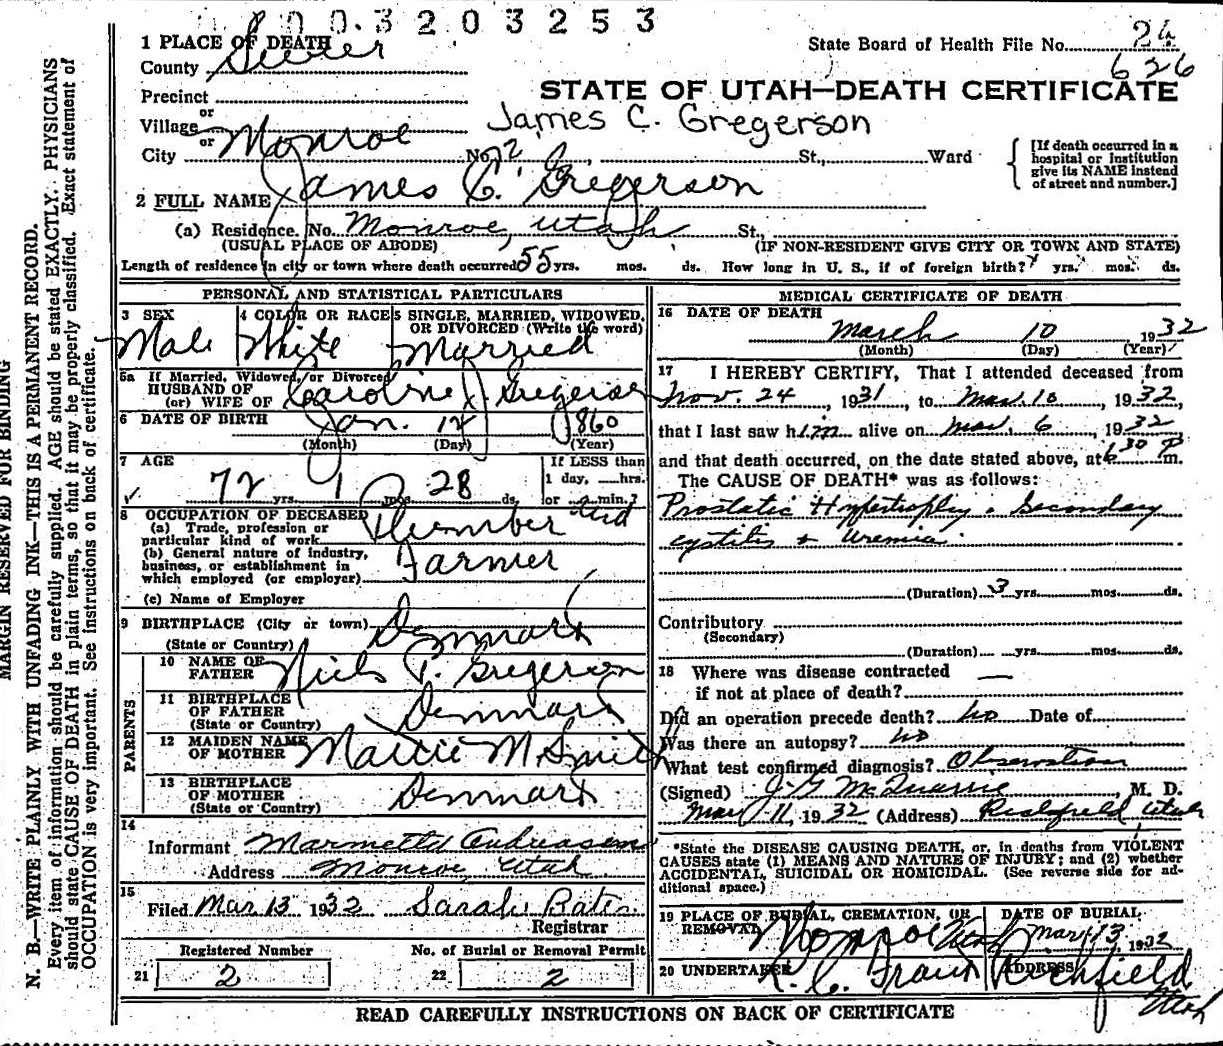 003203253
1 PLACE OF DEATH
County Sevier
State Board of Health File No. 24
626
Precinct
STATE OF UTAH—DEATH CERTIFICATE
or
Village
James C. Gregerson
or
City Monroe No. St., Ward
[If death occurred in a hospital or institution give its NAME instead of street and number.]
2 FULL NAME James C. Gregerson
(a) Residence. No. Monroe, Utah St.,
(USUAL PLACE OF ABODE) (IF NON-RESIDENT GIVE CITY OR TOWN AND STATE)
Length of residence in city or town where death occurred 55 yrs. mos. ds. How long in U. S., if of foreign birth? yrs. mos. ds.
PERSONAL AND STATISTICAL PARTICULARS
3 SEX 4 COLOR OR RACE 5 SINGLE, MARRIED, WIDOWED, OR DIVORCED (Write the word)
Male White Married
5a If Married, Widowed, or Divorced
HUSBAND OF
(or) WIFE OF Caroline J. Gregerson
6 DATE OF BIRTH Jan. 12 1860
(Month) (Day) (Year)
7 AGE If LESS than
1 day, hrs.
72 yrs. 1 mos. 28 ds. or min.?
8 OCCUPATION OF DECEASED
(a) Trade, profession or
particular kind of work Plumber and
(b) General nature of industry,
business, or establishment in
which employed (or employer) Farmer
(c) Name of Employer
9 BIRTHPLACE (City or town)
(State or Country) Denmark
PARENTS
10 NAME OF
FATHER Niels P. Gregerson
11 BIRTHPLACE
OF FATHER
(State or Country) Denmark
12 MAIDEN NAME
OF MOTHER M Smith
13 BIRTHPLACE
OF MOTHER
(State or Country) Denmark
14
Informant Marmetta Andreasen
Address Monroe, Utah
15
Filed Mar 13 1932 Sarah Bates
Registrar
Registered Number No. of Burial or Removal Permit
21 2 22 2
MEDICAL CERTIFICATE OF DEATH
16 DATE OF DEATH
March 10 1932
(Month) (Day) (Year)
17 I HEREBY CERTIFY, That I attended deceased from
Nov. 24, 1931, to Mar. 10, 1932,
that I last saw him alive on Mar. 6, 1932
and that death occurred, on the date stated above, at 6 30 P m.
The CAUSE OF DEATH* was as follows:
Prostatic Hypertrophy. Secondary
cystitis + Uremia.
(Duration) 3 yrs. mos. ds.
Contributory
(Secondary)
(Duration) yrs. mos. ds.
18 Where was disease contracted
if not at place of death?
Did an operation precede death? no Date of
Was there an autopsy? no
What test confirmed diagnosis? Observation
(Signed) J. G. McQuarrie, M. D.
Mar 11, 1932 (Address) Richfield Utah
*State the DISEASE CAUSING DEATH, or, in deaths from VIOLENT
CAUSES state (1) MEANS AND NATURE OF INJURY; and (2) whether
ACCIDENTAL, SUICIDAL OR HOMICIDAL. (See reverse side for ad-
ditional space.)
19 PLACE OF BURIAL, CREMATION, OR REMOVAL DATE OF BURIAL
Monroe Utah Mar 13 1932
20 UNDERTAKER ADDRESS
Richfield
Utah
READ CAREFULLY INSTRUCTIONS ON BACK OF CERTIFICATE
MARGIN RESERVED FOR BINDING
N. B.—WRITE PLAINLY WITH UNFADING INK—THIS IS A PERMANENT RECORD.
Every item of information should be carefully supplied. AGE should be stated EXACTLY. PHYSICIANS
should state CAUSE OF DEATH in plain terms, so that it may be properly classified. Exact statement of
OCCUPATION is very important. See instructions on back of certificate.